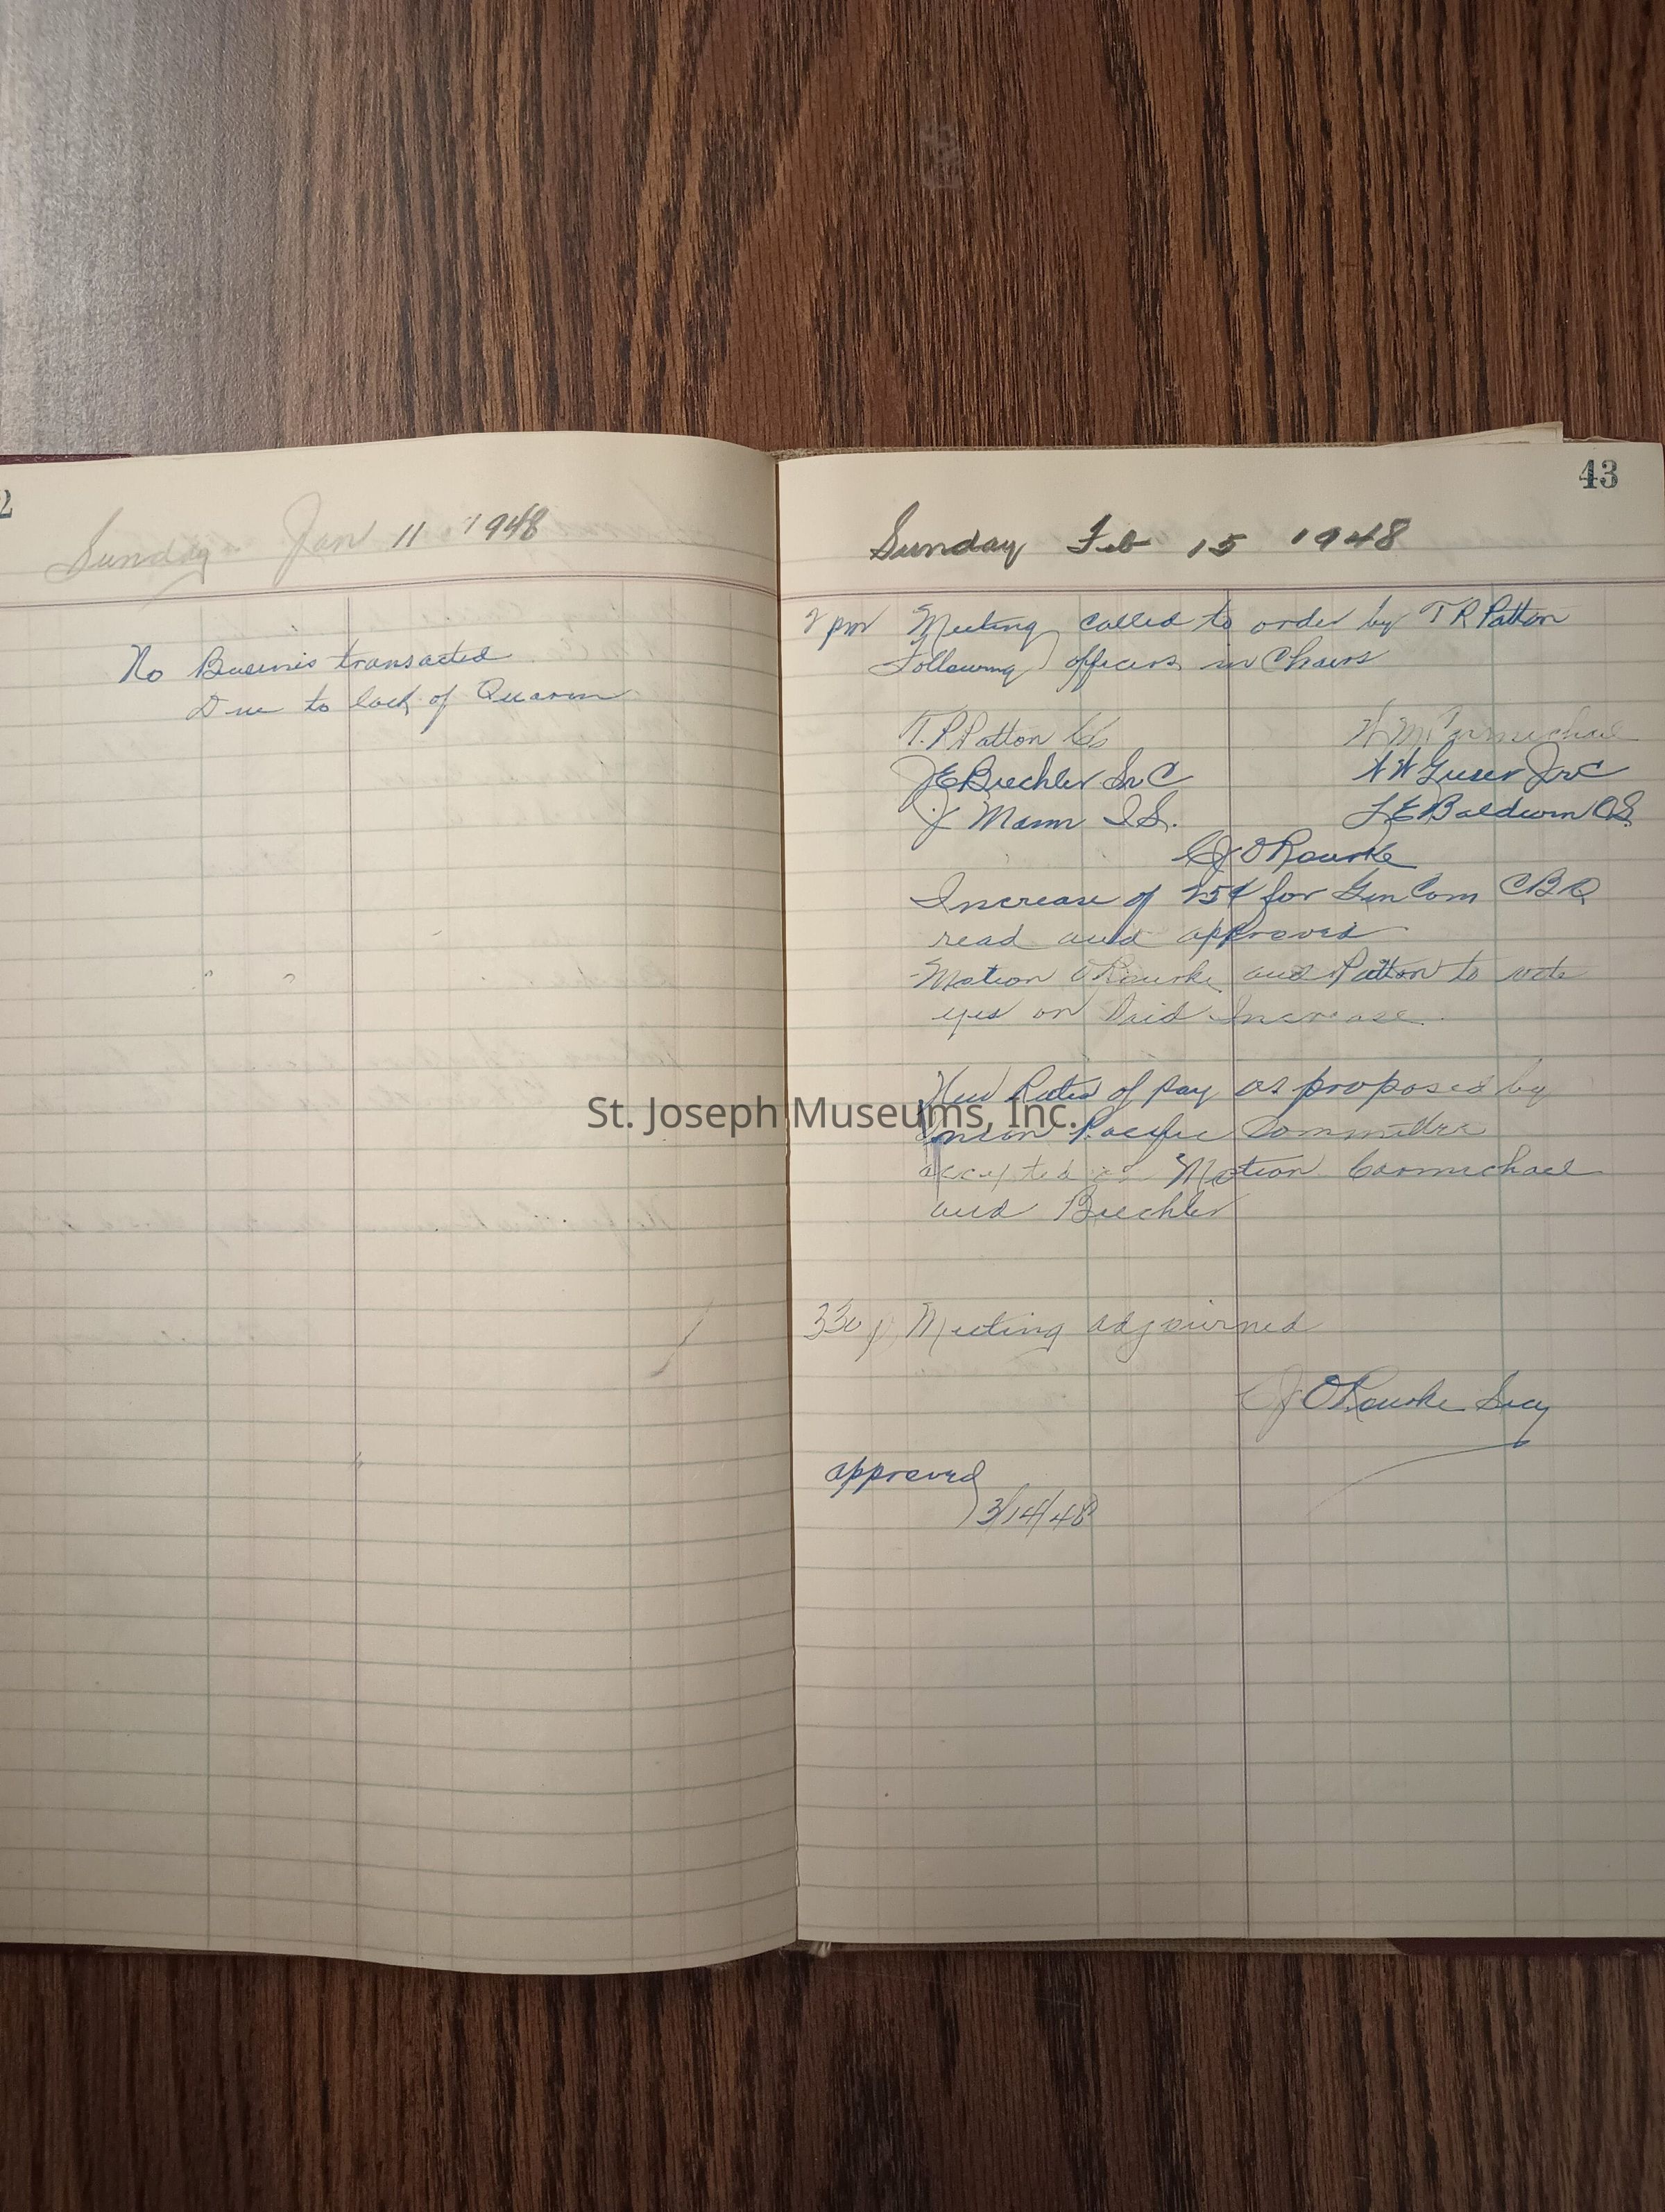 2
Sunday Jan 11 1948
No Business transacted
Due to lack of Quorum
43
Sunday Feb 15 1948
2 pm Meeting called to order by T R Patton
Following officers in Chairs
T. R Patton
W M Carmichael
J E Buechler Sr C
J Mann I S.
L E Baldwin O S
C J O Rourke
Increase of 25¢ for Gen Com CB Q
read and approved
Motion O Rourke and Patton to vote
yes on Said Increase.
New Rates of pay as proposed by
Union Pacific Committee
accepted on Motion Carmichael
and Buechler
330 p Meeting adjourned
C J O Rourke Secy
approved
3/14/48
St. Joseph Museums, Inc.